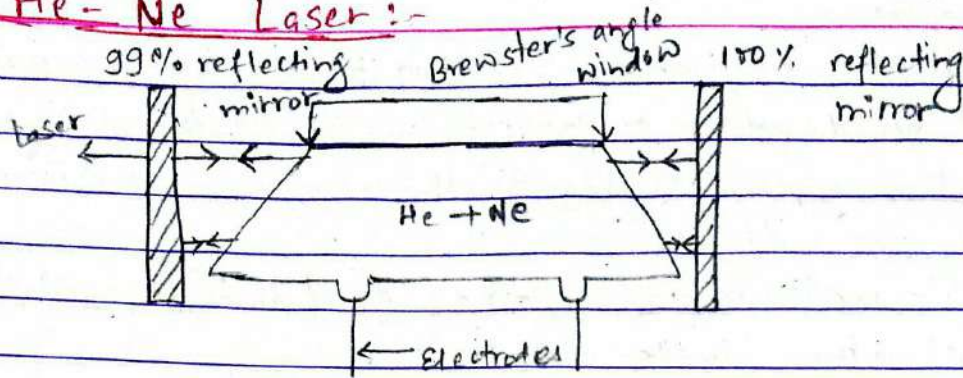 He - Ne Laser :-
99% reflecting mirror
Brewster's angle window
100% reflecting mirror
Laser
He + Ne
Electrodes